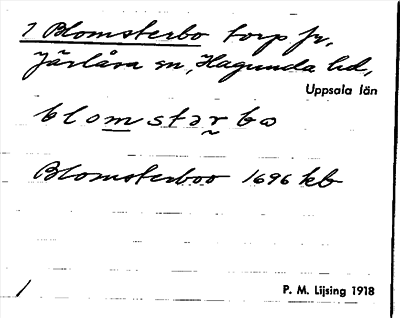 1 Blomsterbo torp fr.
Järlåsa sn, Hagunda hd,
Uppsala län
blomstərbo
Blomsterboo 1696 kb
/
P. M. Lijsing 1918